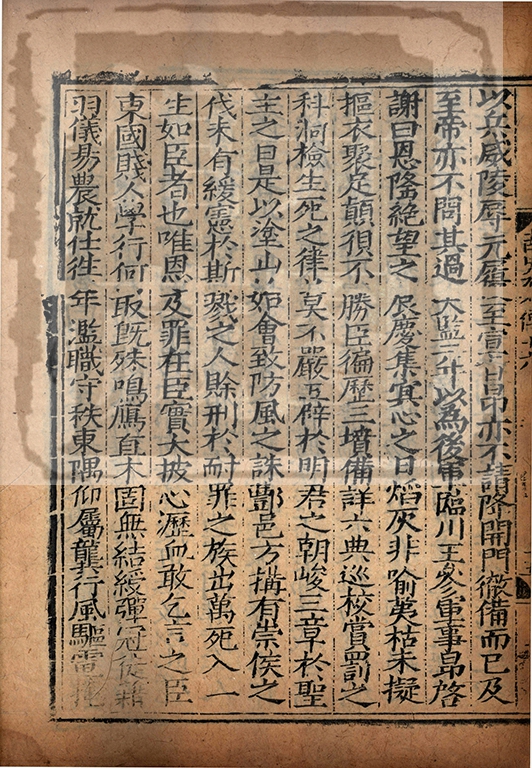 以兵威陵辱元履至宣旨昂亦不請降開門徹備而已及
至帝亦不問其過天監二年以為後軍臨川王參軍事昂啓
謝曰恩隆絶望之辰慶集寘心之日熖灰非喻荑枯未擬
摳衣聚足顛狽不勝臣徧歷三墳備詳六典巡校賞罰之
科洞檢生死之律莫不嚴五辟於明君之朝峻三章於聖
主之日是以塗山始會致防風之誅酆邑方構有崇侯之
伐未有緩憲於斯戮之人賖刑於耐罪之族出萬死入一
生如臣者也唯恩及罪在臣實大披心瀝血敢乞言之臣
東國賤人學行何取旣殊鳴鴈直木固無結綬彈冠徒藉
羽儀易農就仕往年濫職守秩東隅仰屬龔行風驅電掩